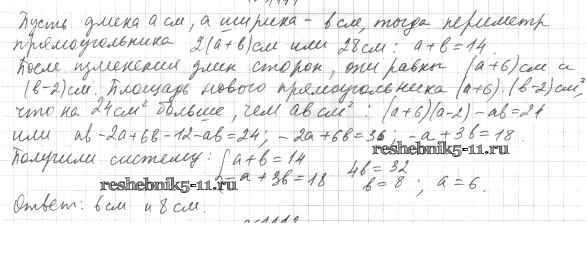 Пусть длина a см, а ширина - b см, тогда периметр
прямоугольника 2(a+b)см или 28см: a+b=14.
После изменения длин сторон, они равны (a+6)см и
(b-2)см. Площадь нового прямоугольника (a+6)·(b-2)см²,
что на 24см² больше, чем ab см²: (a+6)(a-2)-ab=24
или ab-2a+6b-12-ab=24; -2a+6b=36; -a+3b=18.
Получили систему: { a+b=14
-a+3b=18
4b=32
b=8; a=6.
reshebnik5-11.ru
reshebnik5-11.ru
Ответ: 6см и 8см.